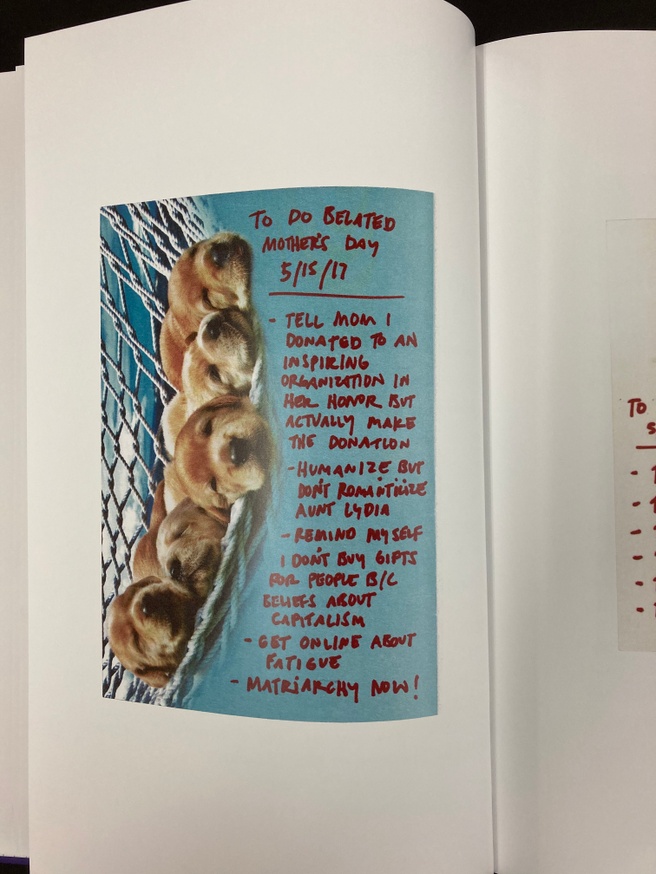 TO DO BELATED
MOTHER'S DAY
5/15/17
- TELL MOM I
DONATED TO AN
INSPIRING
ORGANIZATION IN
HER HONOR BUT
ACTUALLY MAKE
THE DONATION
- HUMANIZE BUT
DON'T ROMANTICIZE
AUNT LYDIA
- REMIND MYSELF
I DON'T BUY GIFTS
FOR PEOPLE B/C
BELIEFS ABOUT
CAPITALISM
- GET ONLINE ABOUT
FATIGUE
- MATRIARCHY NOW!
TO